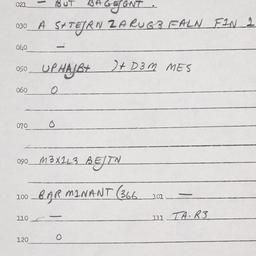 021 — BUT BAGEJGNT.
030 A S+TEJRN ZARUG3 FALN FIN 1
040 —
050 UPHAJB+ )+ D3M MES
060 O
070 O
090 M3X1L3 BEJTN
100 BAR MINANT (366 101 —
110 — 111 TA.R3
120 O